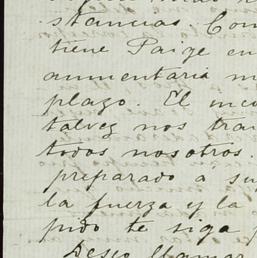 stancias. Con
tiene Paige en
aumentaria m
plazo. El inco
talvez nos trai
todos nosotros.
preparado a su
la fuerza y la
pido te siga p
Deseo llamar